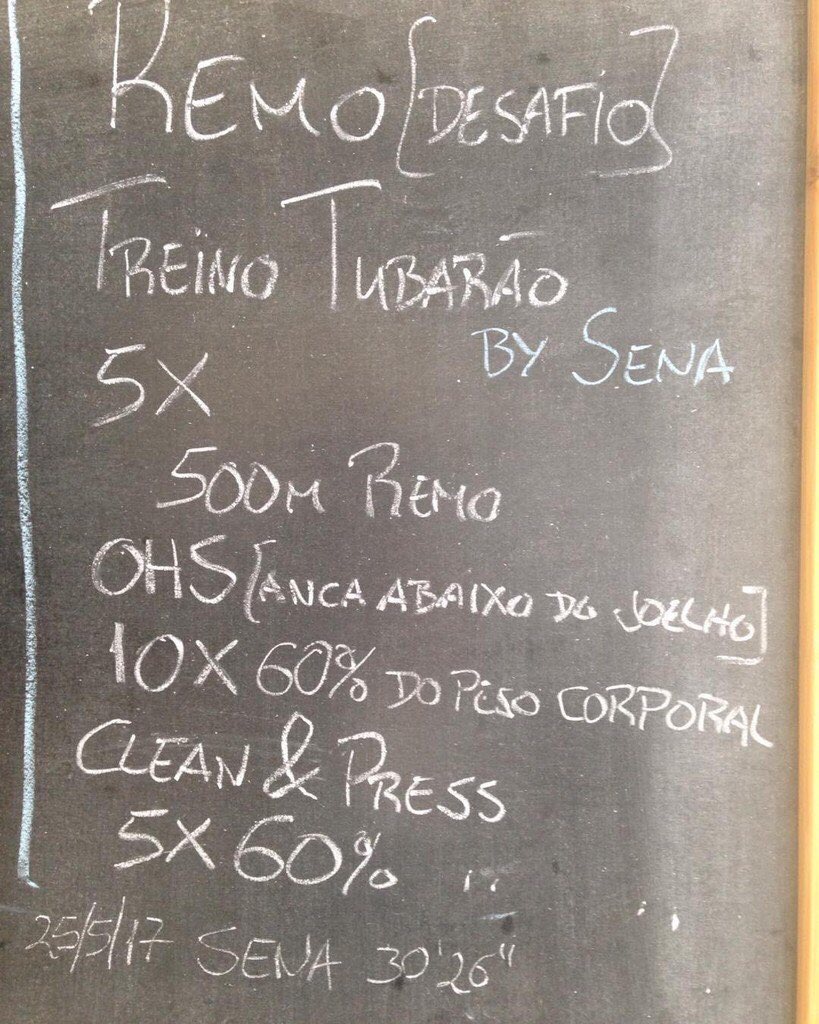 REMO [DESAFIO]
TREINO TUBARÃO
BY SENA
5X
500M REMO
OHS [ANCA ABAIXO DO JOELHO]
10X 60% DO PESO CORPORAL
CLEAN & PRESS
5X 60% " "
25/5/17 SENA 30'26"